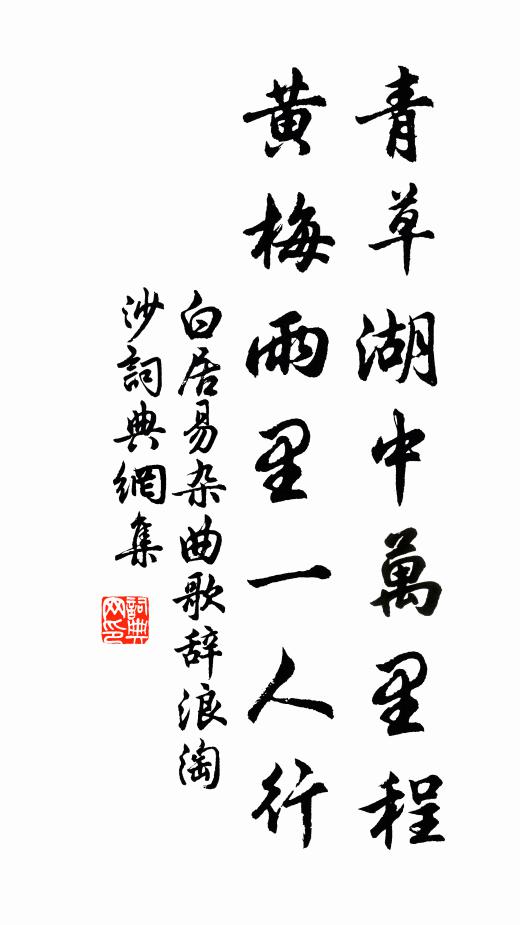 青草湖中萬里程
黃梅雨里一人行
白居易杂曲歌辞浪淘
沙詞典網集
詞典
网印